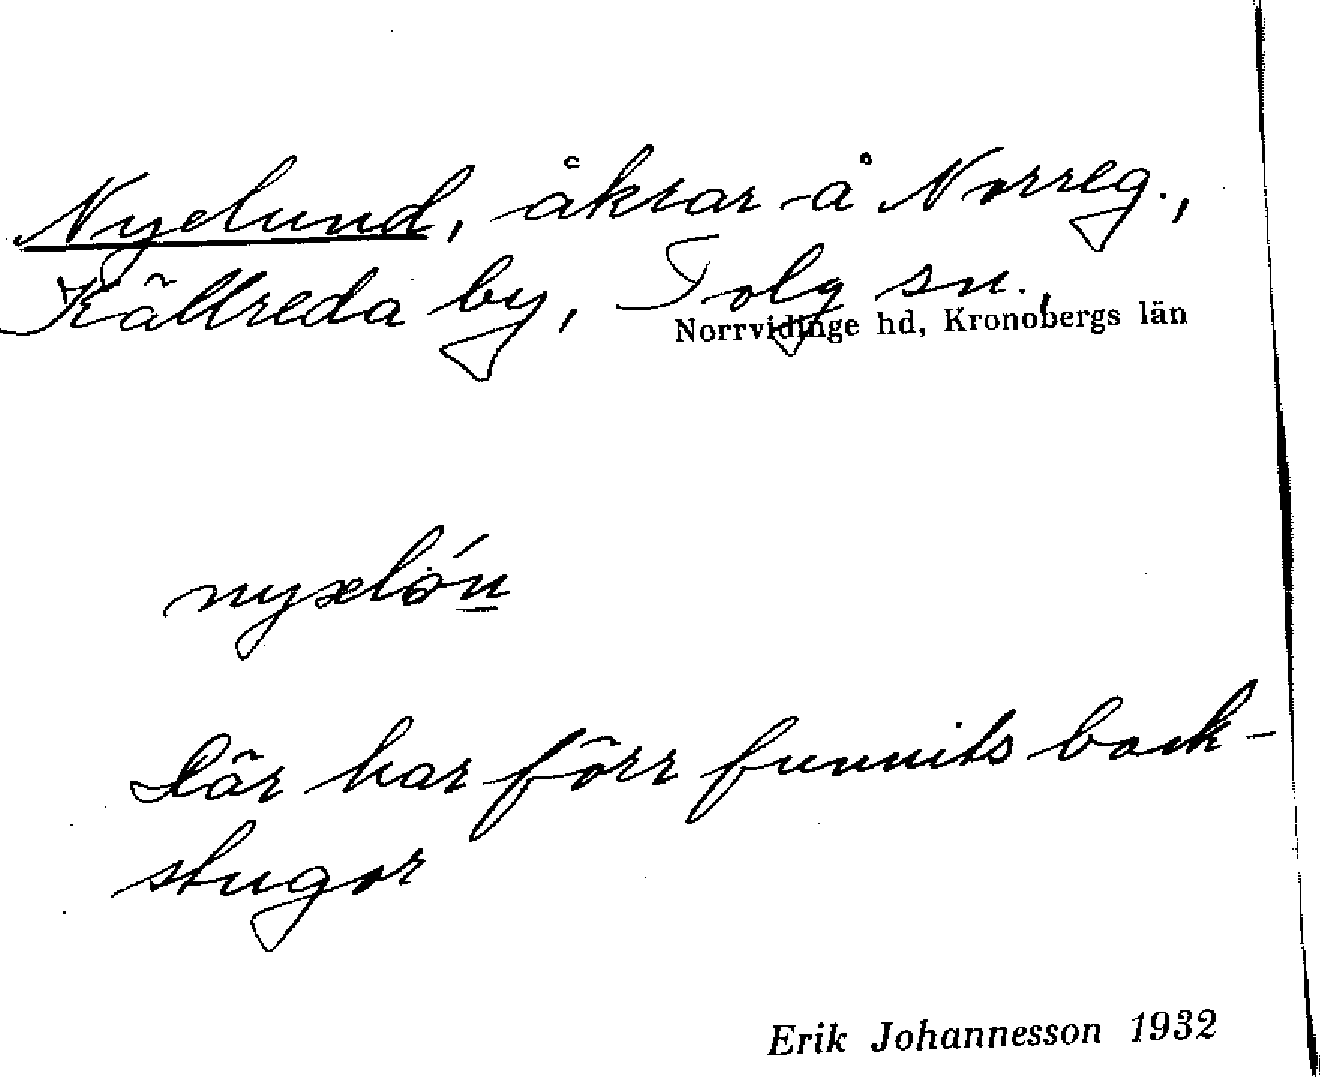 Nyelund, åkrar å Norreg.,
Källreda by, Tolg sn.,
Norrvidinge hd, Kronobergs län
Där har förr funnits back-
stugor
Erik Johannesson 1932